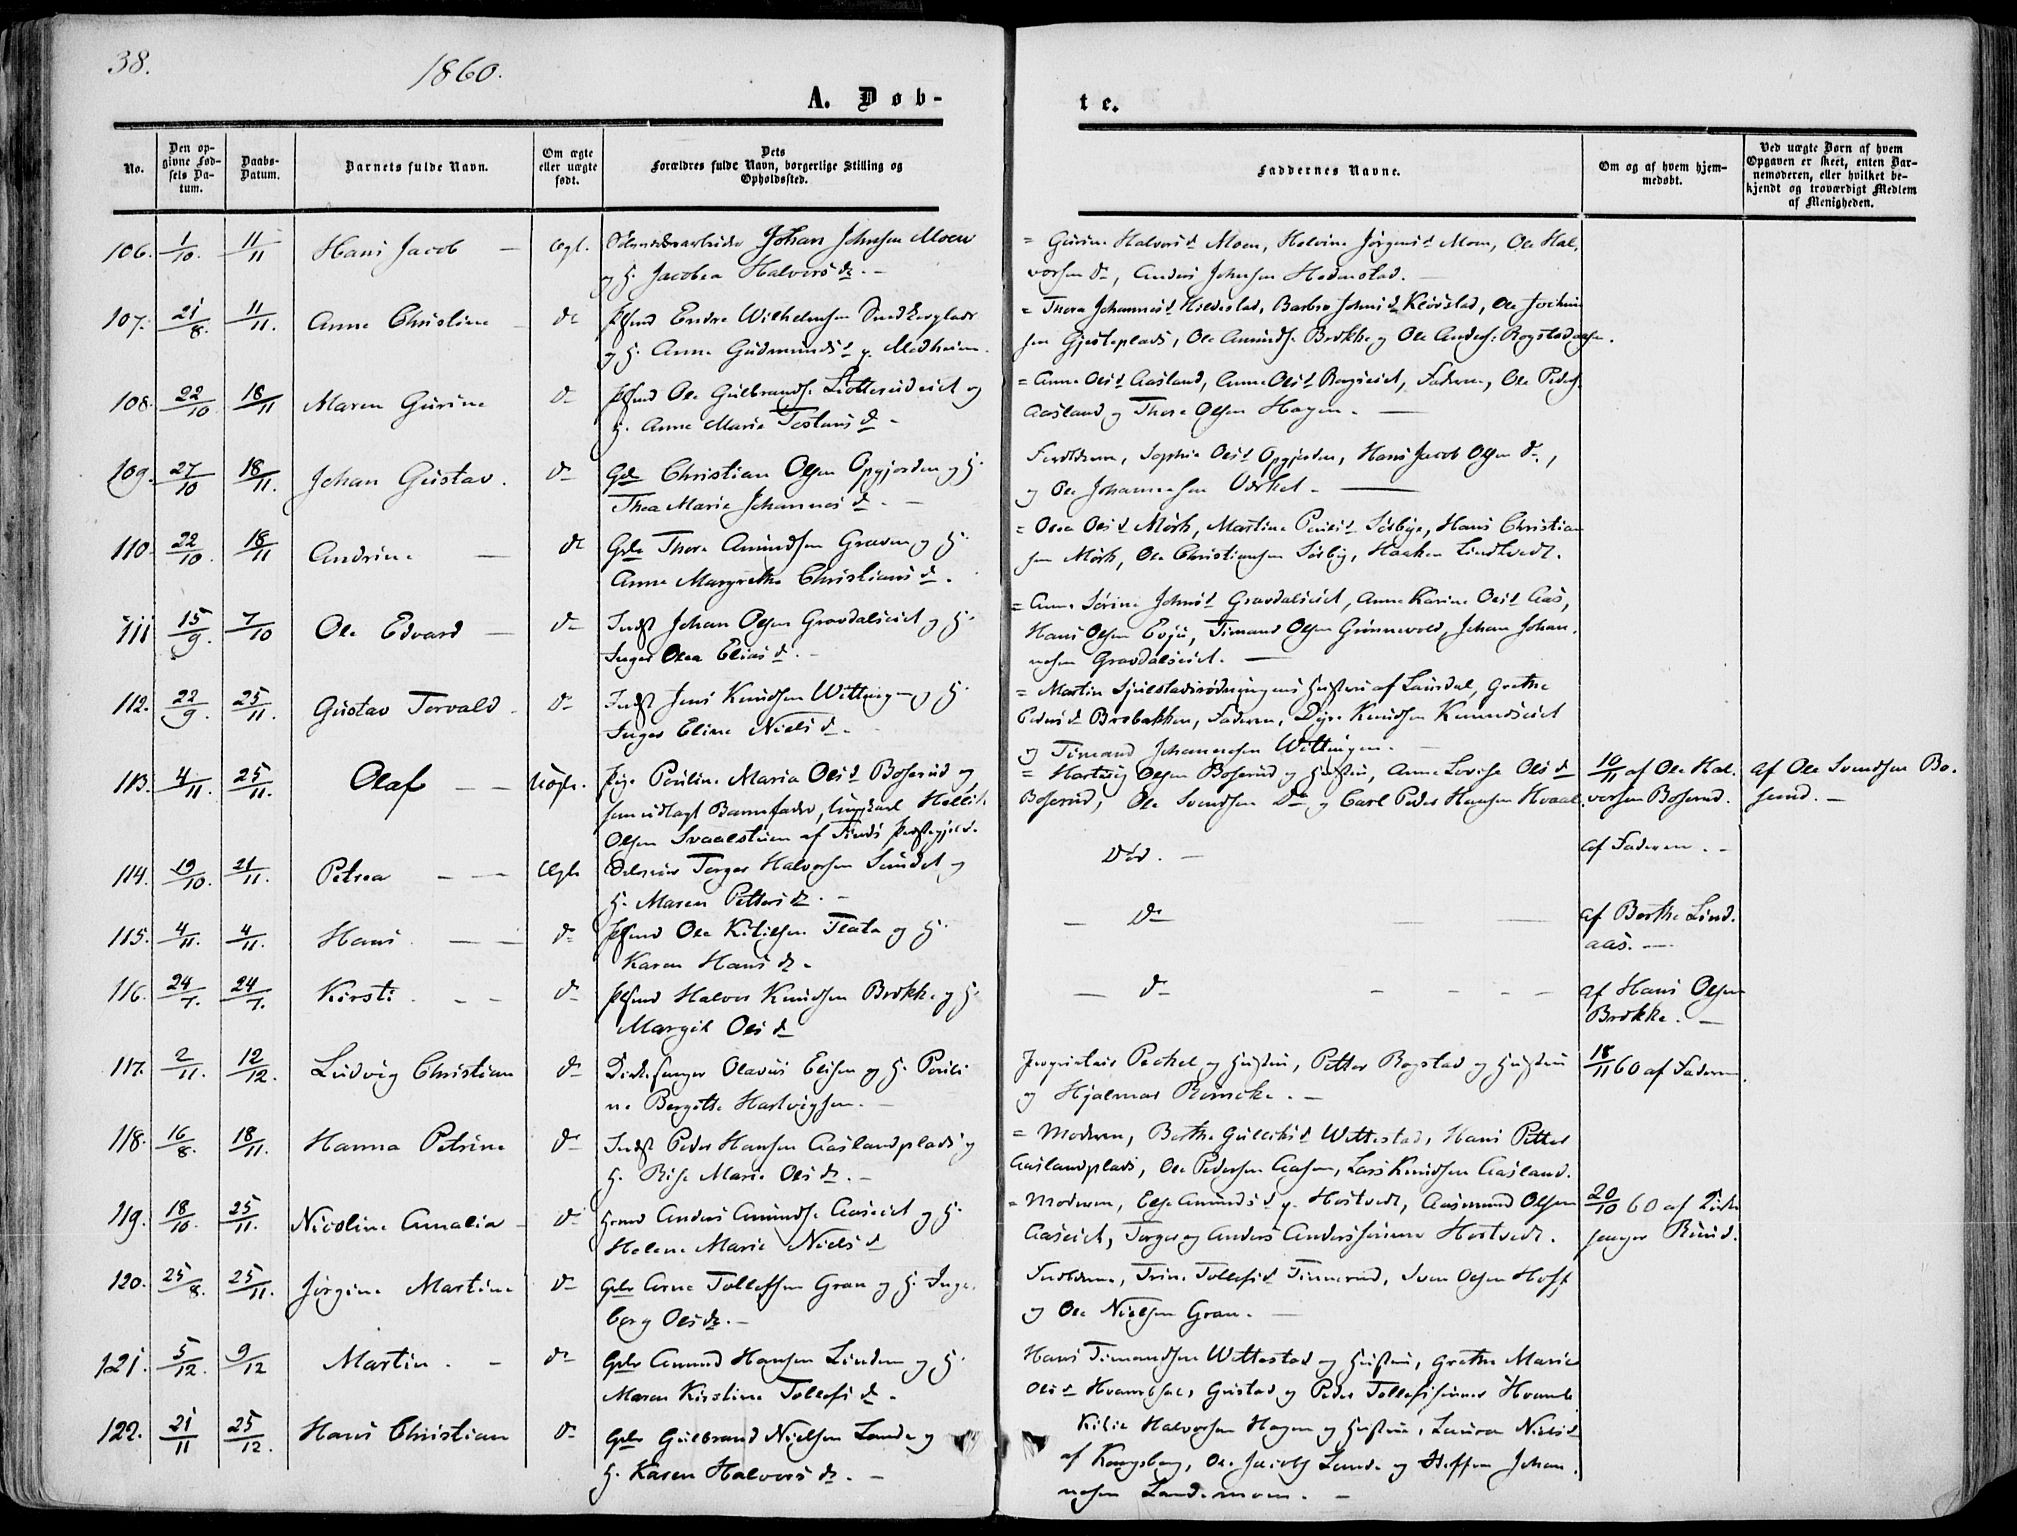 38.
1860.
A. Døb-
te.
No.
Den op-
givne Fød-
sels Da-
tum.
Daabs-
Datum.
Barnets fulde Navn.
Om ægte
eller uægte
født.
Dets
Forældres fulde Navn, borgerlige Stilling og
Opholdssted.
Faddernes Navne.
Om og af hvem hjem-
medøbt.
Ved uægte Børn af hvem
Opgaven er skeet, enten Bar-
nemoderen, eller hvilket be-
kjendt og troværdigt Medlem
af Menigheden.
106. 1/10. 11/11 Hans Jacob - Ægt. Johan Johnsen Moen
og H. Jacobea Halvorsd. -
= Gurine Halvorsd Moen, Helvine Jørgensd Moen, Ole Hal-
vorsen do, Anders Johnsen Hedenstad.
107. 21/8. 11/11. Anne Christine do Endre Wilhelmsen
og H. Anne Gudmundsd
= Thora Johannesd Hildestad, Barbro Johnsd Kløvstad, Ole
sen Gjesteplads, Ole Amunds. Brekke og Ole Anders.
108. 22/10 18/11 Maren Gurine do Plsmd Ole Gulbrands. og
H. Anne Marie d -
= Anne Olsd Aasland, Anne Olsd Faderen, Ole Peders.
Aasland og Thore Olsen Hagen. -
109. 27/10 18/11. Johan Gustav. do Gbr Christian Olsen Opgjorden og H.
Thea Marie Johannesd. -
Forældrene, Sophie Olsd Opgjorden, Hans Jacob Olsen do,
og Ole Johannesen -
110 22/10. 18/11 Andrine - do Gbr Thore Amundsen Graven og H.
Anne Margrethe Christiansd.
= Olea Olsd Mørk, Martine Sørbye, Hans Christian
sen Mørk, Ole Christiansen Sørby, Haaken Lindtvedt.
111 15/9. 7/10 Ole Edvard - do Indst Johan Olsen Gravdalseiet og H.
Inger Olea Eliasd. -
= Anne Sørine Johnsd Gravdalseiet, Anne Karine Olsd Aas,
Hans Olsen Evju, Timand Olsen Grønnevold, Johan Johan-
nesen Gravdalseiet. -
112. 22/9. 25/11. Gustav Torvald. do Indst Jens Knudsen Wittingen og H.
Inger Eline Nielsd. -
= Martin af Laurdal, Grethe
Pedersd Brobakken, Faderen, Knudsen
og Timand Johannesen Wittingen. -
113. 4/11. 25/11. Olaf - - Uægte. Pige Pauline Maria Olsd Boserud og
som udlagt Barnefader, Ungkarl
Olsen Svaalstuen af
= Hartvig Olsen Boserud og Hustru, Anne Lovise Olsd
Boserud, Ole Svendsen Do og Carl Peder Hansen Hvaal.
10/11 af Ole Hal-
vorsen Boserud.
af Ole Svendsen Bo-
serud. -
114. 19/10. 21/11. Petrea - - Ægte Torger Halvorsen Sundet og
H. Maren Pettersd. -
Død. -
af Faderen. -
115. 4/11. 4/11. Hans. - - do Plsmd Ole Kittilsen og H.
Karen Hansd. -
- do - -
af Berthe Lind-
aas. -
116. 24/7. 24/7. Kirsti. - - do Plsmd Halvor Knudsen Brekke og H.
Margit Olsd
- do - - - -
af Hans Olsen
Brekke. -
117. 2/11. 12/12. Ludvig Christian do Kirkesanger Olavus Elisen og H. Pauli-
ne Bergitte Hartvigsen. -
Proprietair Peckel og Hustru, Petter Rogstad og Hustru
og Hjalmar Reincke. -
18/11 60 af Faderen.
118. 16/8. 18/11. Hanna Petrine do Indst Peder Hansen Aaslandplads og
H. Marie Olsd. -
= Moderen, Berthe Gulliksd Wittestad, Hans Petter
Aaslandplads, Ole Pedersen Aasen, Lars Knudsen Aasland.
119. 18/10. 25/11. Nicoline Amalia - do Anders Amunds. Aaseiet og H.
Helene Marie Nielsd
= Moderen, Else Amundsd Hostvedt, Aasmund Olsen
Aaseiet, Torger og Anders Anderssønner Hostvedt.
20/10 60 af Kirke
sanger Ruud.
120. 25/8. 25/11. Jørgine Martine do Gbr Arne Tollefsen Gran og H. Inge-
borg Olsd. -
Forældrene, Trine Tollefsd Tinnerud, Sven Olsen Hoff
og Ole Nielsen Gran. -
121. 5/12. 9/12 Martin. - do Gbr Amund Hansen Linden og H.
Maren Kirstine Tollefsd.
Hans Timandsen Wittestad og Hustru, Grethe Marie
Olsd Gustav og Peder Tollefssønner
122. 21/11 25/12. Hans Christian do Gbr Gulbrand Nielsen Lande og
H. Karen Halvorsd. -
Halvorsen Hagen og Hustru, Laura Nielsd
af Kongsberg, Ole Jacobs. Lande og Steffen Johan-
nesen Landemoen. -